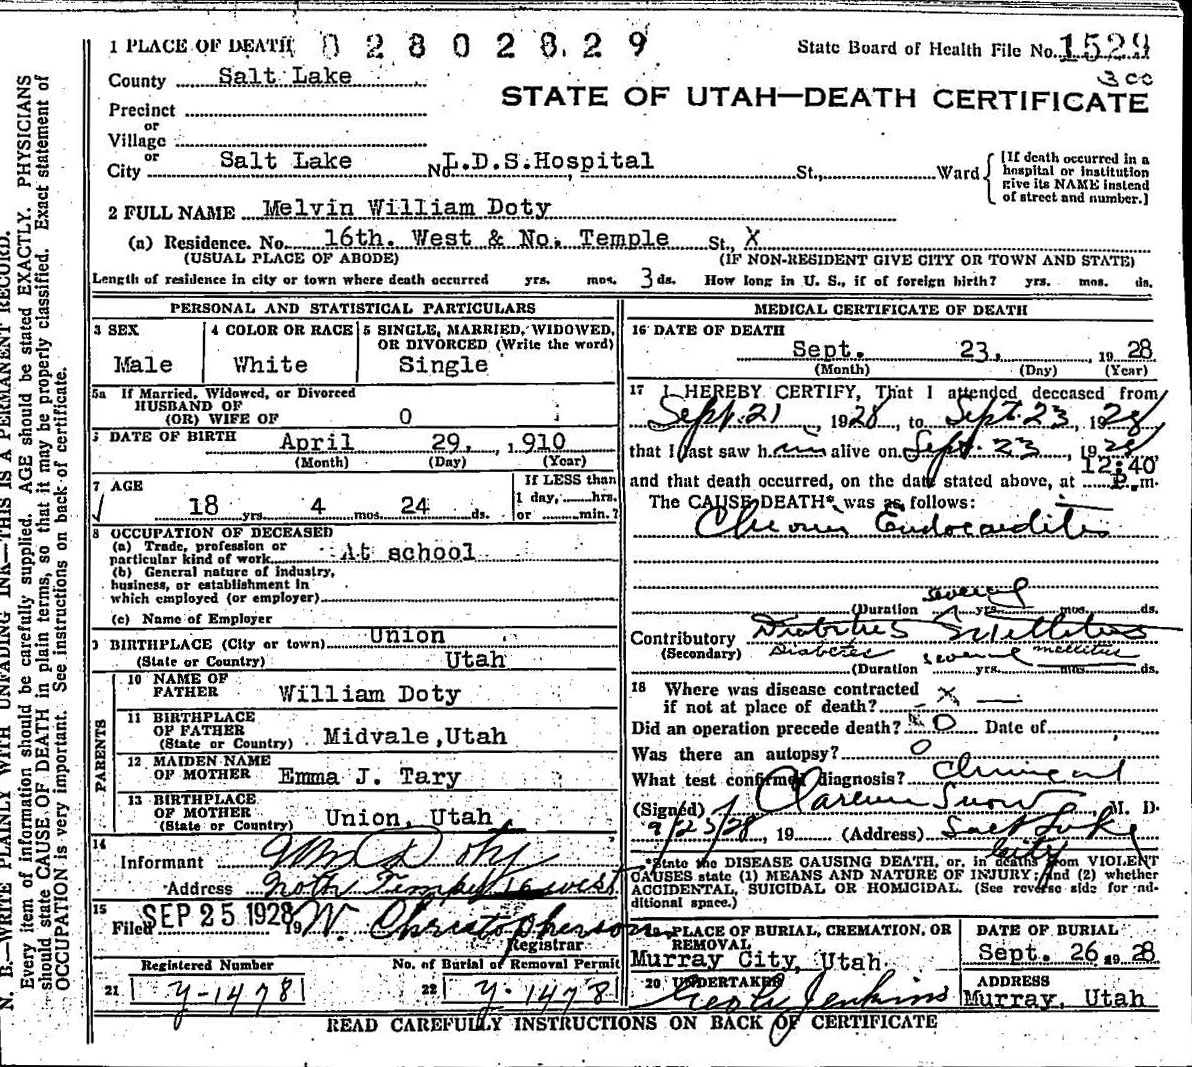 1 PLACE OF DEATH 02802829 State Board of Health File No. 1529
300
County Salt Lake
STATE OF UTAH—DEATH CERTIFICATE
Precinct
or
Village
or
City Salt Lake No. L.D.S.Hospital St., Ward {[If death occurred in a hospital or institution give its NAME instead of street and number.]
2 FULL NAME Melvin William Doty
(a) Residence. No. 16th. West & No. Temple St., X
(USUAL PLACE OF ABODE) (IF NON-RESIDENT GIVE CITY OR TOWN AND STATE)
Length of residence in city or town where death occurred yrs. mos. 3 ds. How long in U. S., if of foreign birth? yrs. mos. ds.
PERSONAL AND STATISTICAL PARTICULARS
3 SEX 4 COLOR OR RACE 5 SINGLE, MARRIED, WIDOWED, OR DIVORCED (Write the word)
Male White Single
5a If Married, Widowed, or Divorced
HUSBAND OF
(OR) WIFE OF 0
DATE OF BIRTH April 29, 1910
(Month) (Day) (Year)
7 AGE If LESS than
1 day, hrs.
18 yrs. 4 mos. 24 ds. or min.?
8 OCCUPATION OF DECEASED
(a) Trade, profession or
particular kind of work At school
(b) General nature of industry,
business, or establishment in
which employed (or employer)
(c) Name of Employer
9 BIRTHPLACE (City or town) Union
(State or Country) Utah
PARENTS
10 NAME OF
FATHER William Doty
11 BIRTHPLACE
OF FATHER
(State or Country) Midvale,Utah
12 MAIDEN NAME
OF MOTHER Emma J. Tary
13 BIRTHPLACE
OF MOTHER
(State or Country) Union, Utah
14
Informant Wm Doty
Address North Temple 16 west
15
Filed SEP 25 1928 W. Christopherson
Registrar
Registered Number No. of Burial or Removal Permit
21 Y-1478 22 Y-1478
MEDICAL CERTIFICATE OF DEATH
16 DATE OF DEATH
Sept. 23, 1928
(Month) (Day) (Year)
17 I HEREBY CERTIFY, That I attended deceased from
Sept. 21, 1928, to Sept. 23, 1928
that I last saw him alive on Sept. 23, 1928
12:40
and that death occurred, on the date stated above, at P.m.
The CAUSE DEATH* was as follows:
Chronic Endocarditis
several
(Duration yrs. mos. ds.
Contributory Diabetes Mellitus
(Secondary) Diabetes mellitus
(Duration several yrs. mos. ds.
18 Where was disease contracted
if not at place of death? X —
Did an operation precede death? No Date of
Was there an autopsy? 0
What test confirmed diagnosis? Clinical
(Signed) Clarence Snow, M. D.
9/23/28, 19 (Address) Salt Lake
City
*State the DISEASE CAUSING DEATH, or, in deaths from VIOLENT
CAUSES state (1) MEANS AND NATURE OF INJURY; and (2) whether
ACCIDENTAL, SUICIDAL OR HOMICIDAL. (See reverse side for additional space.)
19 PLACE OF BURIAL, CREMATION, OR REMOVAL DATE OF BURIAL
Murray City, Utah Sept. 26, 1928
20 UNDERTAKER ADDRESS
Jenkins Murray, Utah
READ CAREFULLY INSTRUCTIONS ON BACK OF CERTIFICATE
N. B.—WRITE PLAINLY WITH UNFADING INK—THIS IS A PERMANENT RECORD.
Every item of information should be carefully supplied. AGE should be stated EXACTLY. PHYSICIANS
should state CAUSE OF DEATH in plain terms, so that it may be properly classified. Exact statement of
OCCUPATION is very important. See instructions on back of certificate.